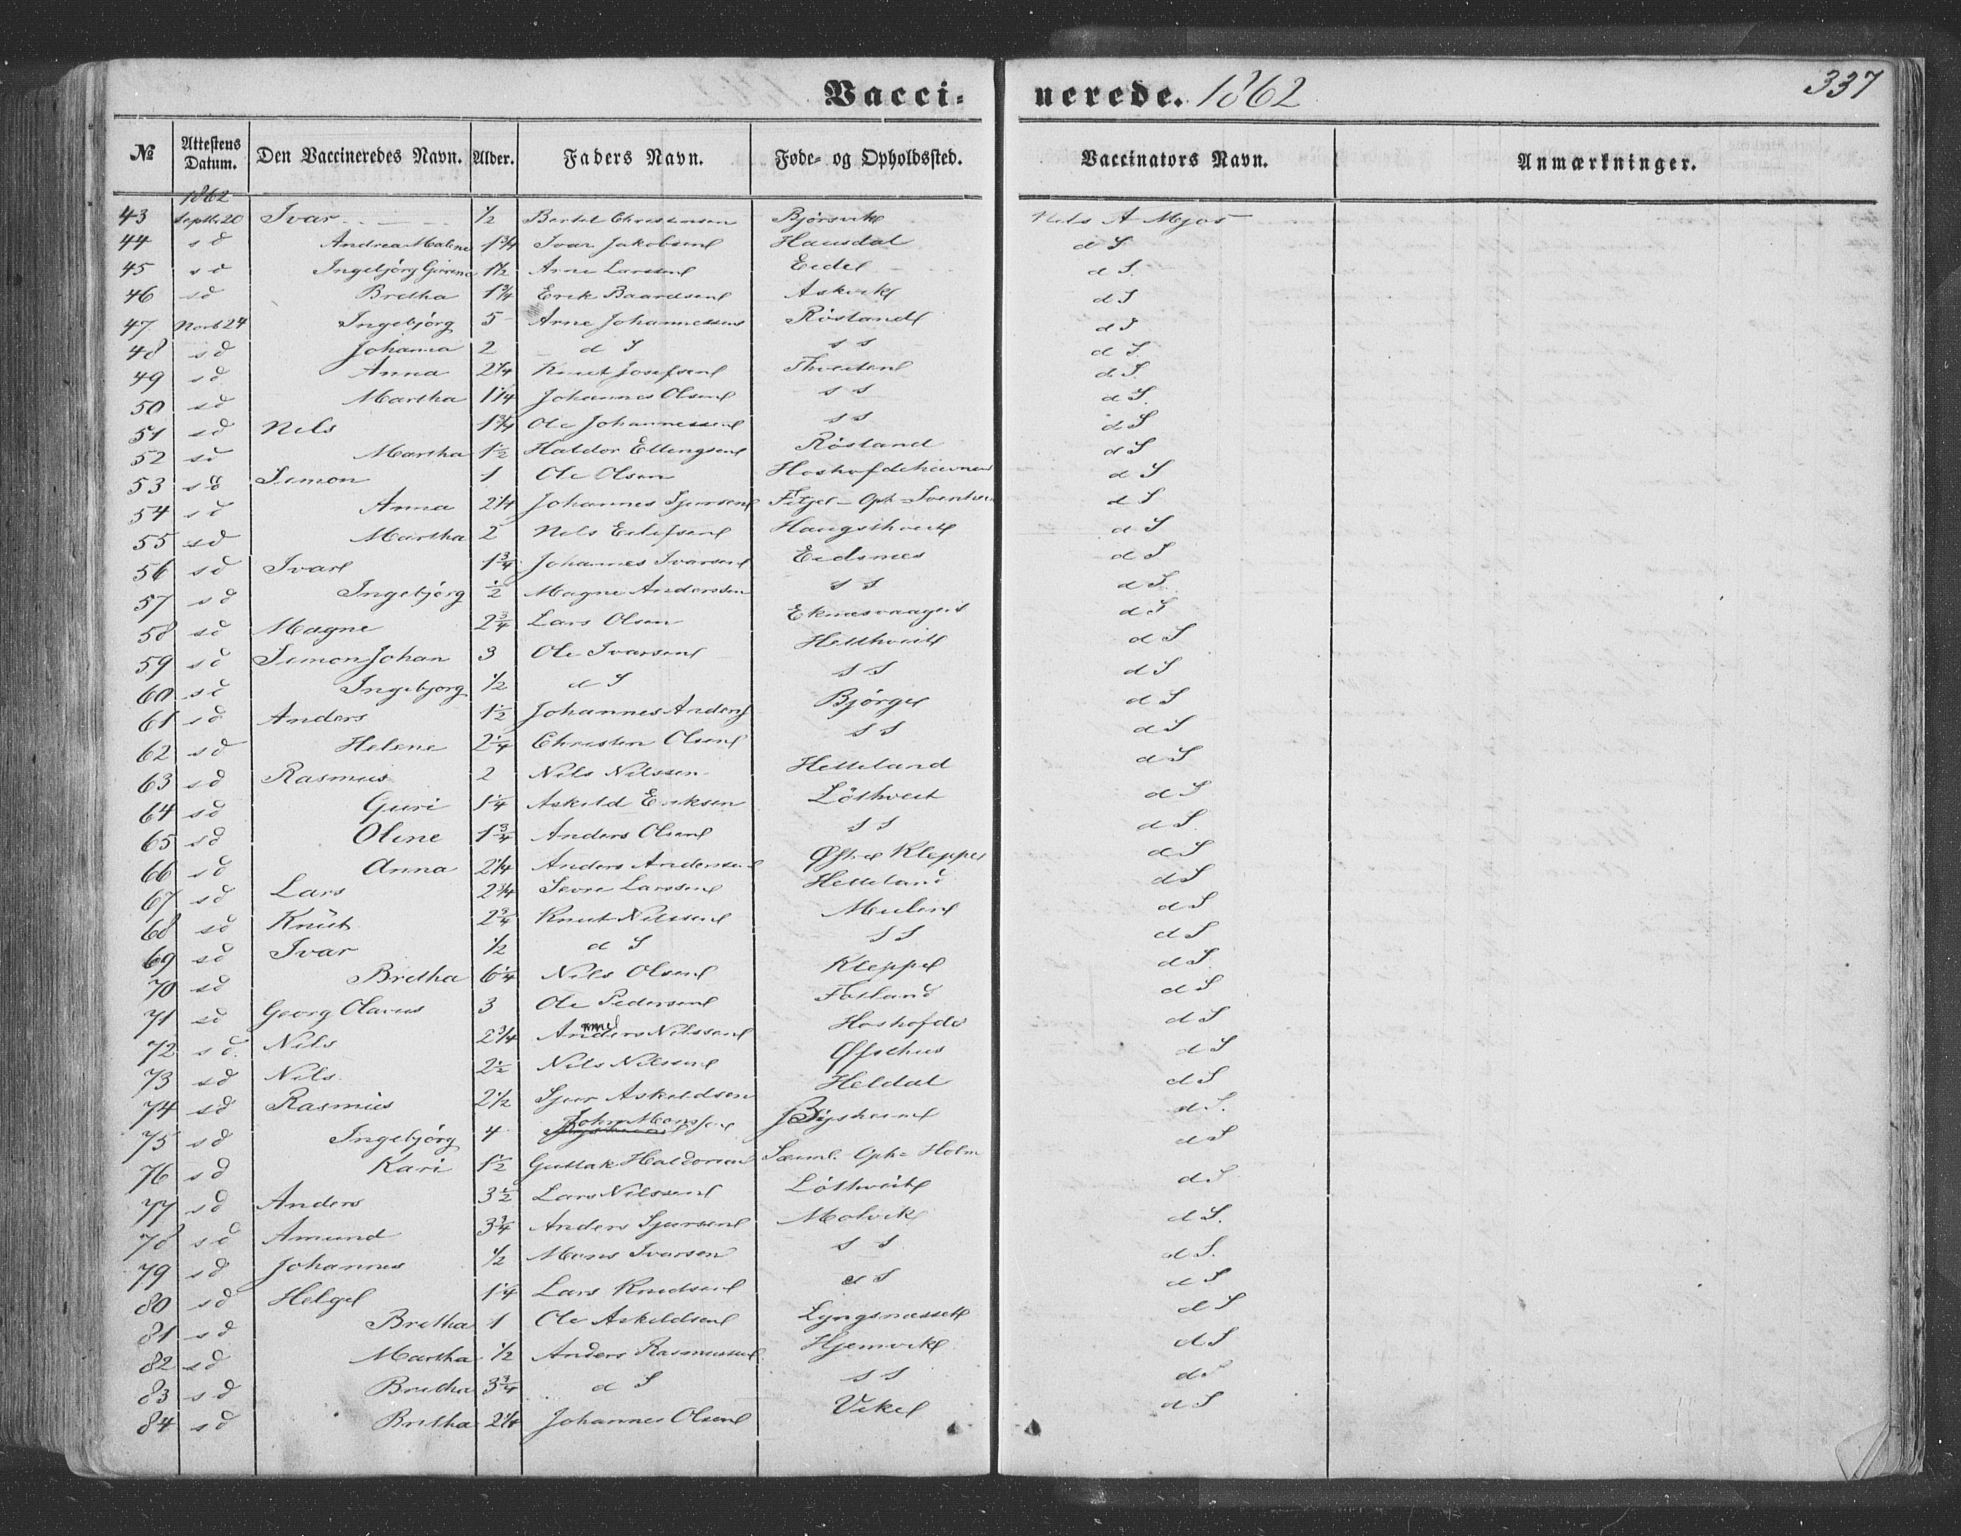 Vacci- nerede. 1862 337
№ Attestens Datum. Den Vaccineredes Navn. Alder. Faders Navn. Føde- og Opholdssted. Vaccinators Navn. Anmærkninger.
1862
43 Septb 20 Ivar 1/2 Bertel Christensen Bjørsvik Nels A Mjøs
44 s d Andrea Malene 1 3/4 Ivar Jakobsen Hausdal d S
45 s d Ingebjörg 1 1/2 Arne Larsen Eide d S.
46 s d Bretha 1 3/4 Erik Baardsen Askvik d S
47 Novb 24 Ingebjörg 5 Arne Johannessen Rösland d S
48 s d Johanna 2 d S s s d S.
49 s d Anna 2 1/4 Knut Josefsen Thveiten d S.
50 s d Martha 1 1/4 Johannes Olsen s s d S.
51 s d Nels 1 3/4 Ole Johannessen s s d S
52 s d Martha 1 1/2 Haldor Ellingsen Rösland d S
53 s d Simon 1 Ole Olsen d S
54 s d Anna 2 1/4 Johannes Sjursen d S
55 s d Martha 2 Nels Eilefsen Haugsthveit d S
56 s d Ivar 1 3/4 Johannes Ivarsen Eidsnes d S
57 s d Ingebjörg 1/2 Magne Anderssen s s d S
58 s d Magne 2 3/4 Lars Olsen Eknesvaagen d S
59 s d Simon Johan 3 Ole Ivarsen Helthveit d S
60 s d Ingebjorg 1/2 d S s s d S
61 s d Anders 1 1/2 Johannes Anders Bjørge d S
62 s d Helene 2 1/4 Christen Olsen s s d S
63 s d Rasmus 2 Nils Nilssen Helleland d S
64 s d Guri 1 1/4 Askild Eriksen Löthveit d S
65 s d Oline 1 3/4 Anders Olsen s s d S.
66 s d Anna 2 1/4 Anders Andersen Øfsre Kleppe d S
67 s d Lars 2 3/4 Larssen Helleland d S
68 s d Knut 2 3/4 Knut Nilssen d S
69 s d Ivar 1/2 d S s s d S
70 s d Bretha 6 1/4 Nils Olsen Kleppe d S.
71 s d Georg Olavus 3 Ole Pedersen Fosland d S
72 s d. Nils 2 3/4 Nilssen Hoshofde d S
73 s d Nils 2 1/2 Nils Nilssen Øfsthus d S
74 s d Rasmus 2 1/2 Sjur Askeldsen Heldal d S
75 s d Ingebjörg 4 John Monssen Bysheim d S.
76 s d Kari 1 1/2 Guttak Haldorsen Oph= Holm d S
77 s d Anders 3 1/2 Lars Nilssen Löthveit d S
78 s d Amund 3 3/4 Anders Sjursen Molvik d S.
79 s d Johannes 1/2 Mons Ivarsen s s d S.
80 s d Helge 1 1/4 Lars Knudsen d S d S
81 s d Bretha 1 Ole Askeldsen Lyngsnesset d S
82 s d Martha 1/2 Anders Rasmussen Hjemvik d S
83 s d Bretha 3 3/4 d S s s d S
84 s d Bretha 2 1/4 Johannes Olsen Vike d S